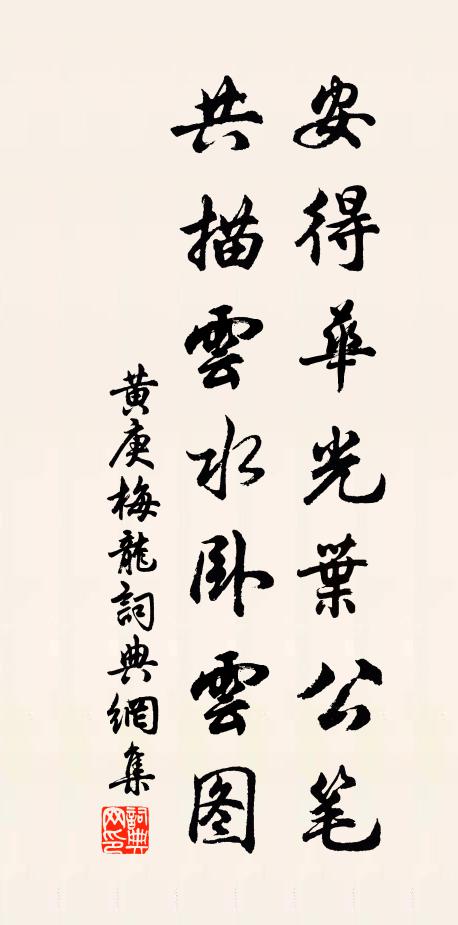 安得華光葉公笔
共描雲水卧雲图
黄庚梅龍詞典網集
詞典网印